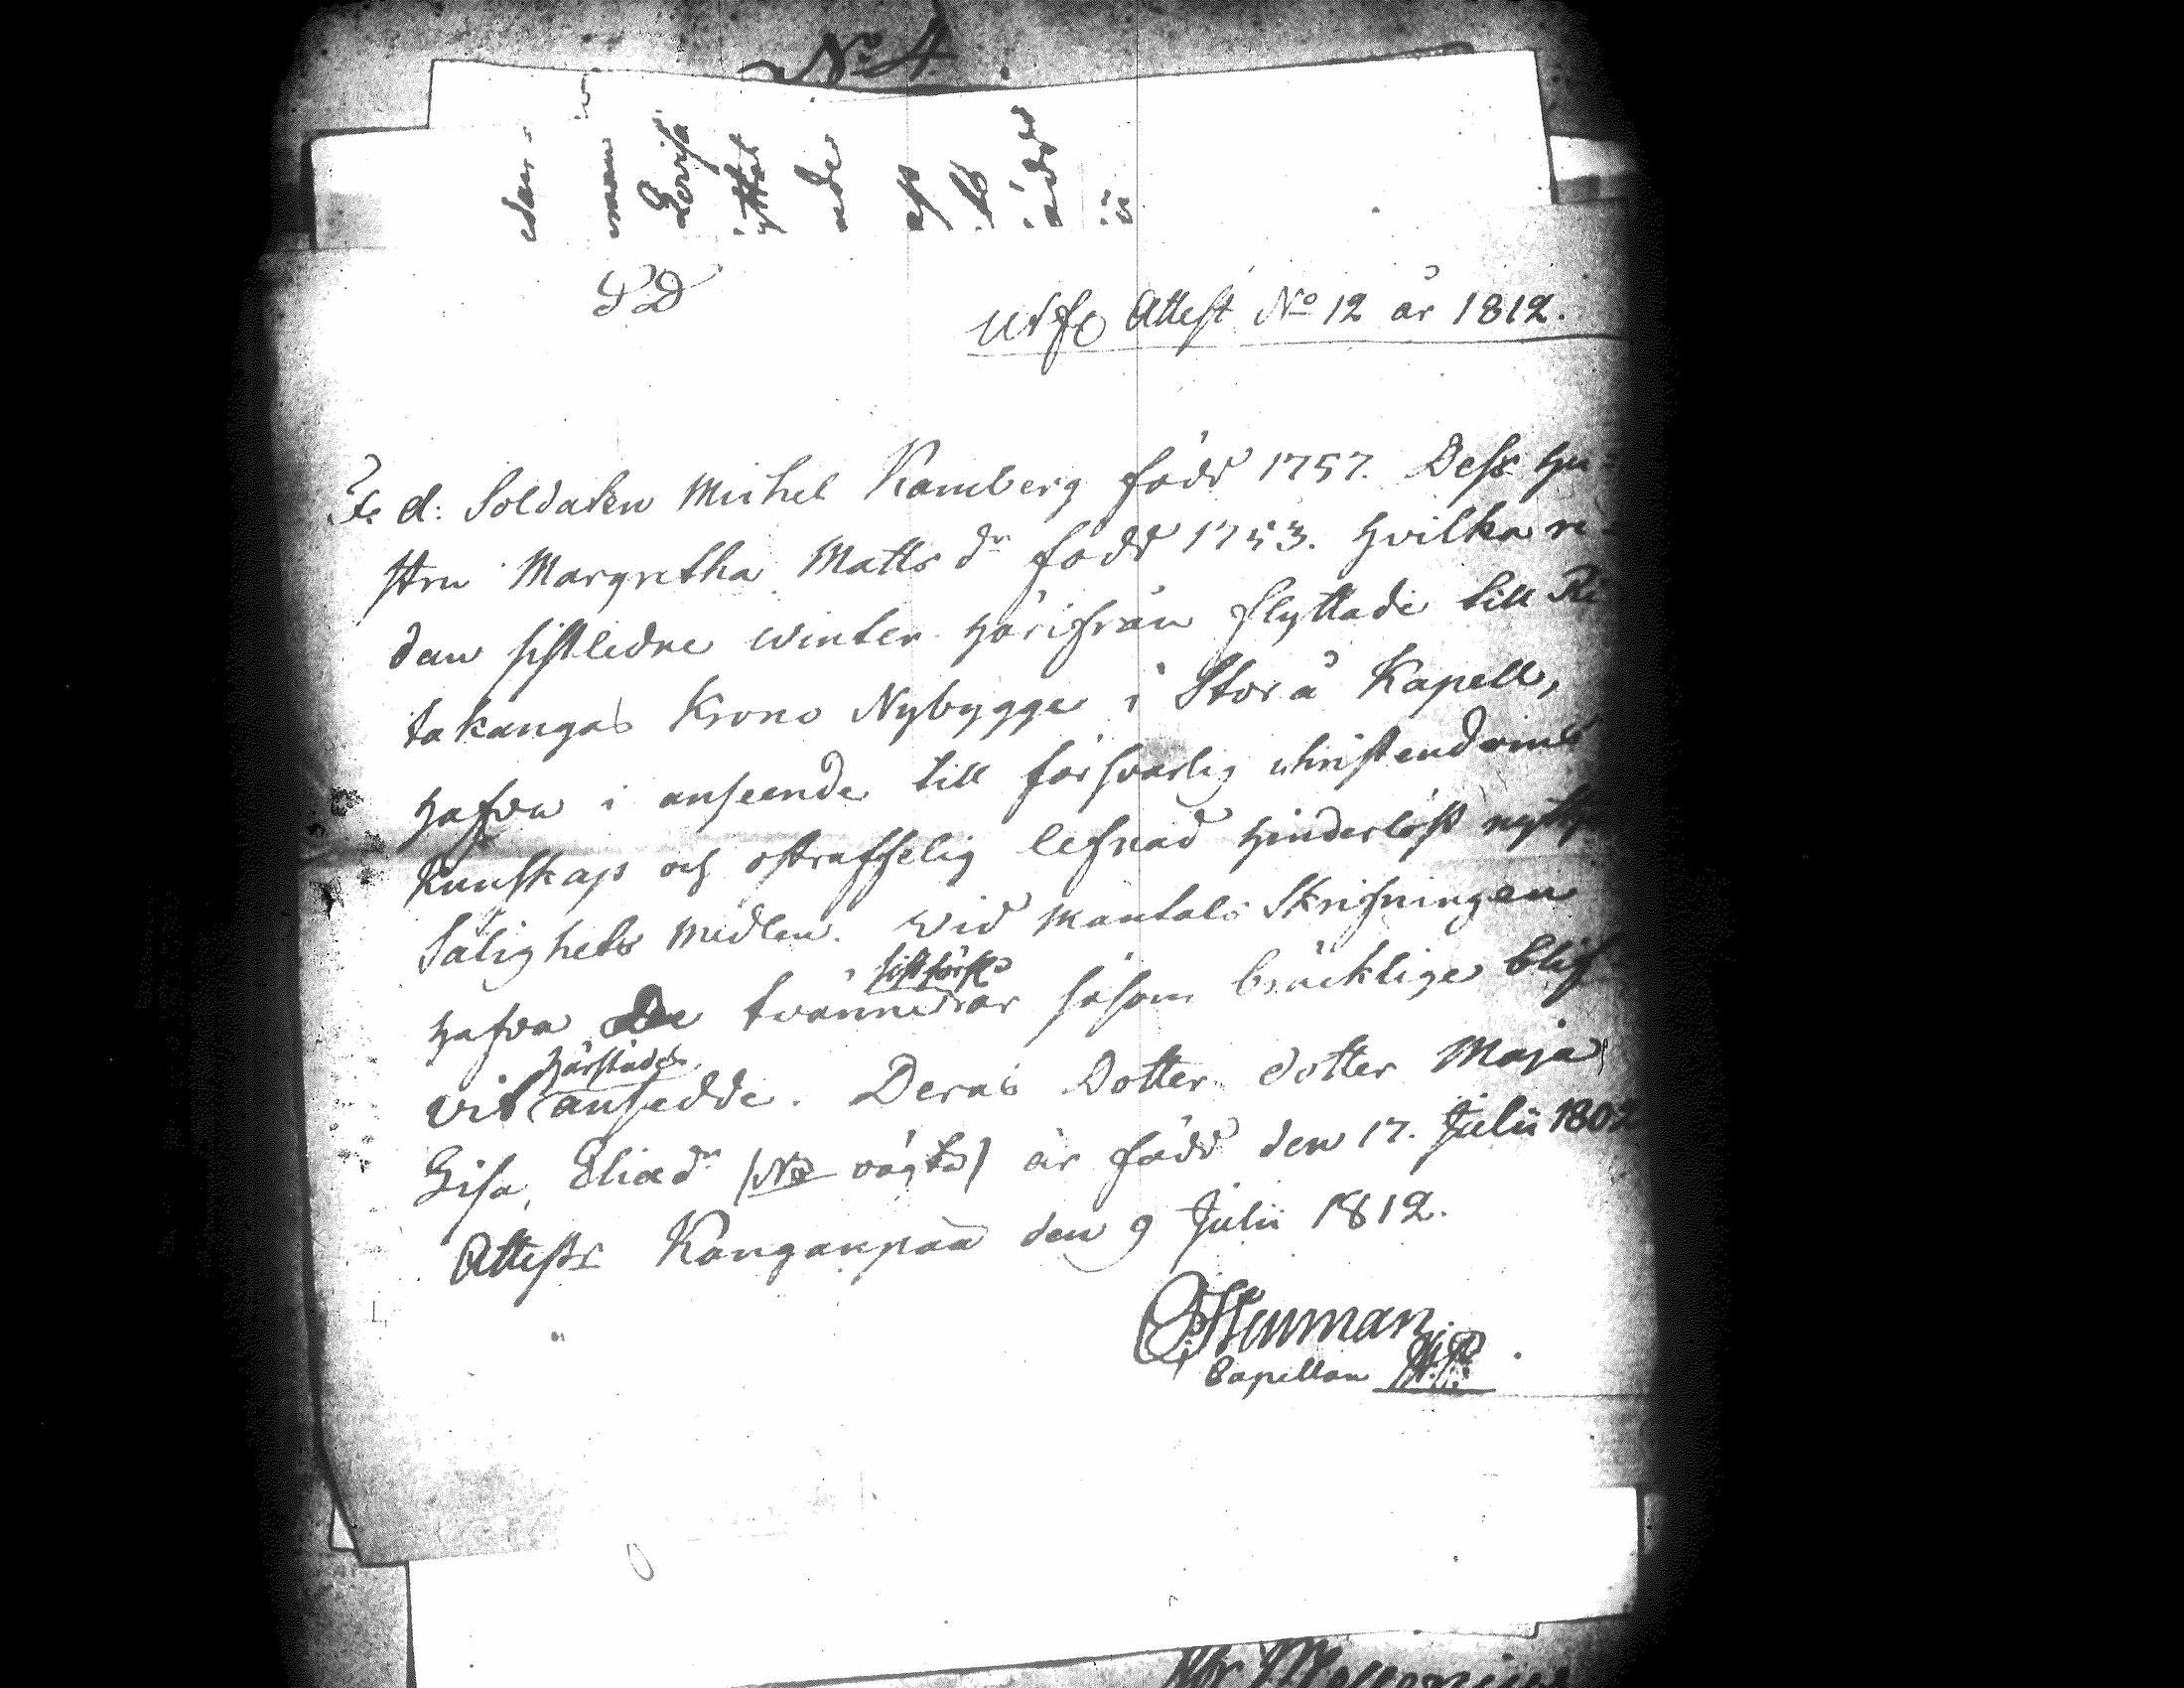 No 4
Lovisa
SD
Utfl Attest No 12 år 1812.
F. d. Soldaten Michel Kamberg född 1757. Dess Hu=
stru Margretha Matts dr född 1753. Hvilka re=
dan sistledne Winter härifrån flyttade till Ri
takangas Krono Nybygge i Storå Kapell,
hafva i anseende till försvarlig christendoms
kunskap och ostraffelig lefnad hinderlöst nyttja
Salighets Medlen. Wid Mantals Skrifningen
hafva De tvänne sistförfl. år såsom bräcklige blif
vit härstädes ansedde. Deras Dotter dotter Maja
Lisa Eliædr är född den 17. Julii 1802
Attestr Kanganpää den 9 Julii 1812.
Neuman
Capellan